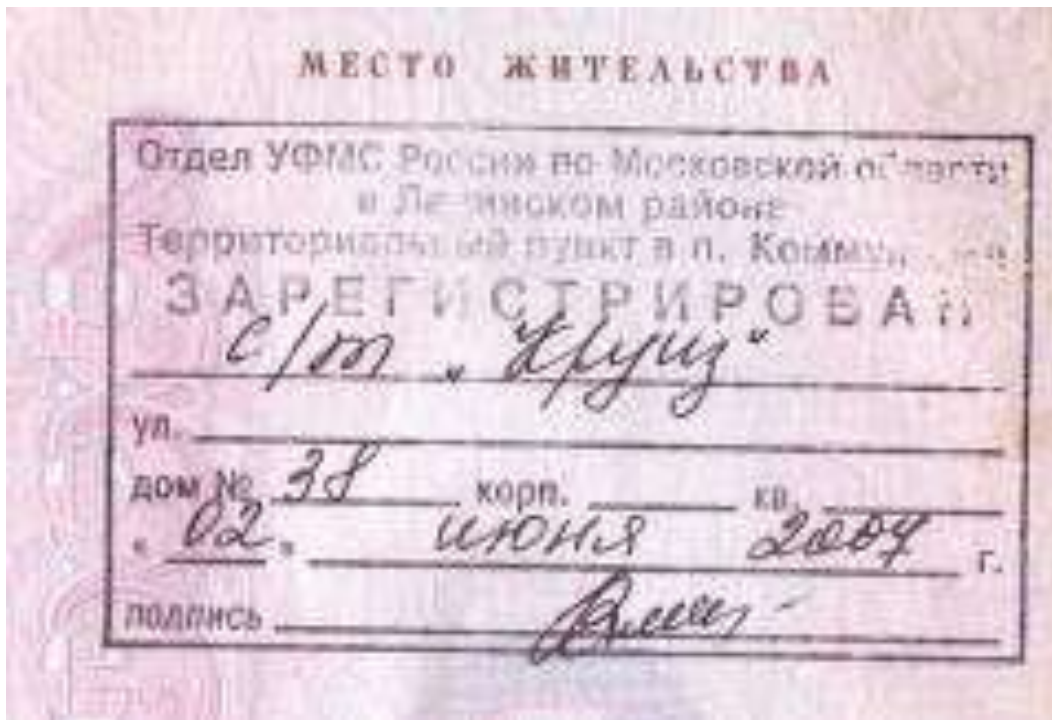 МЕСТО ЖИТЕЛЬСТВА
Отдел УФМС России по Московской области
в Ленинском районе
Территориальный пункт в п.
ЗАРЕГИСТРИРОВАН
с/т „Круиз“
ул.
дом № 38 корп. кв.
« 02 » июня г.
подпись